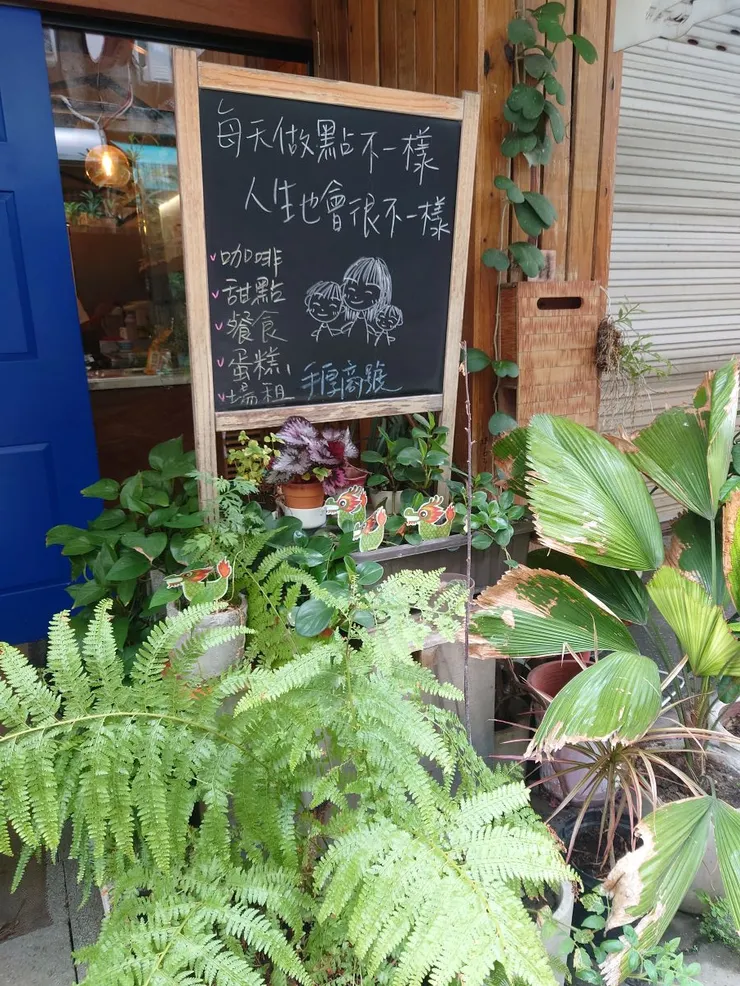 每天做點不一樣
人生也會很不一樣
咖啡
甜點
餐食
蛋糕
場租
手厚商號